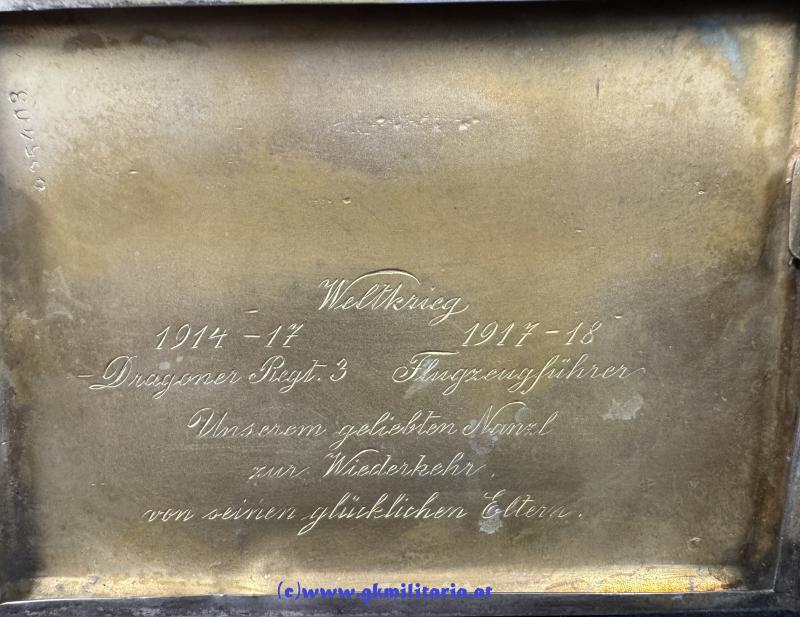 Weltkrieg
1914-17 1917-18
Dragoner Regt. 3 Flugzeugführer
Unserem geliebten Nanzl
zur Wiederkehr,
von seinen glücklichen Eltern.
(c)www.gkmilitaria.at